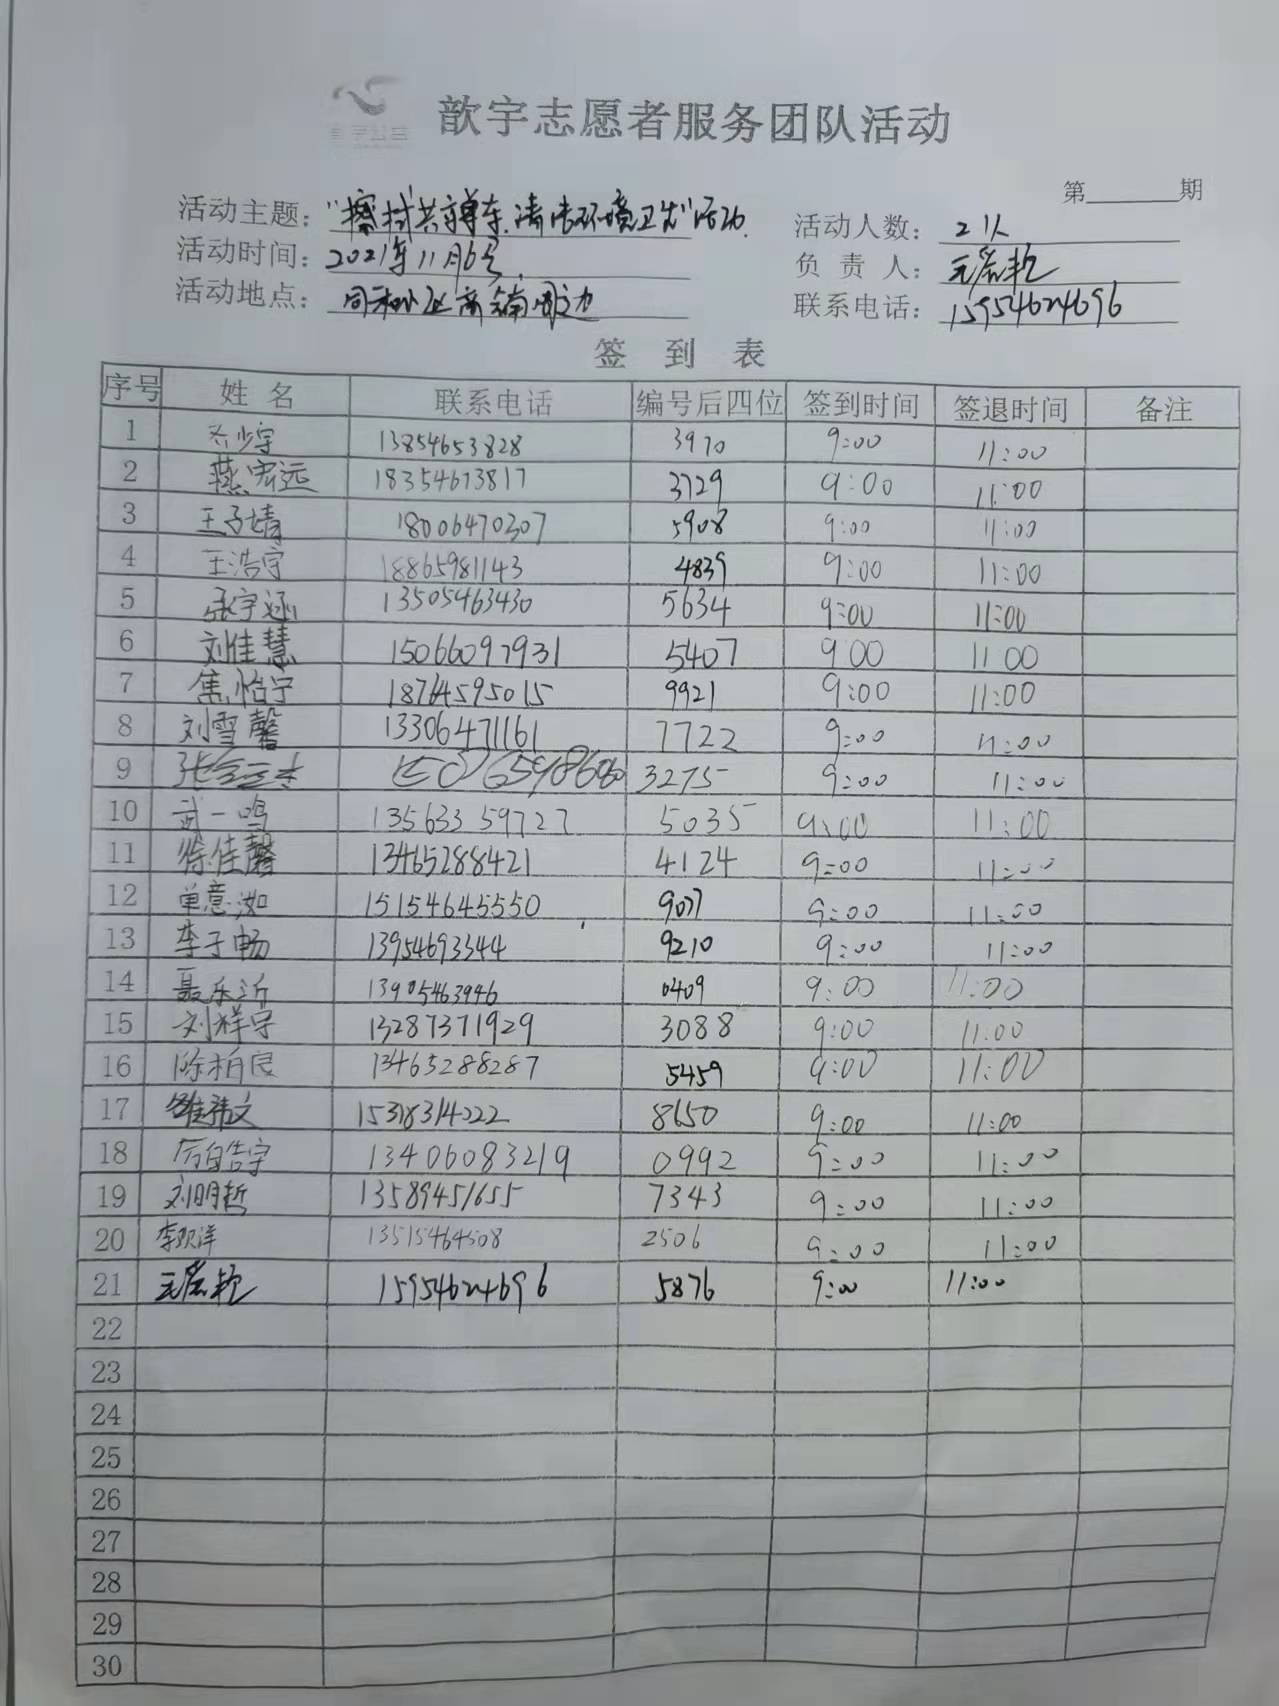 歆宇公益
歆宇志愿者服务团队活动
第 期
活动主题："擦拭共享单车,清洁环境卫生"活动.
活动人数：21人
活动时间：2021年11月6号
负责人：
活动地点：同和小区商铺周边
联系电话：15954624696
签 到 表
序号 姓名 联系电话 编号后四位 签到时间 签退时间 备注
1 乔少宇 13854653828 3970 9:00 11:00
2 燕宏远 18354673817 3729 9:00 11:00
3 王子婧 18006470307 5908 9:00 11:00
4 王浩宇 18865981143 4839 9:00 11:00
5 张宇涵 13505463430 5634 9:00 11:00
6 刘佳慧 15066097931 5407 9:00 11:00
7 焦怡宁 18764595015 9921 9:00 11:00
8 刘雪馨 13306471161 7722 9:00 11:00
9 3275 9:00 11:00
10 武一鸣 13563359727 5035 9:00 11:00
11 徐佳馨 13465288421 4124 9:00 11:00
12 单意洳 15154645550 9077 9:00 11:00
13 李子畅 13954693344 9210 9:00 11:00
14 聂乐沂 13905463946 0409 9:00 11:00
15 刘祥宇 13287371929 3088 9:00 11:00
16 陈柏良 13465288287 5459 9:00 11:00
17 15318314222 8650 9:00 11:00
18 13406083219 0992 9:00 11:00
19 刘明哲 13589451655 7343 9:00 11:00
20 李欢洋 13515464508 2506 9:00 11:00
21 15954624696 5876 9:00 11:00
22
23
24
25
26
27
28
29
30